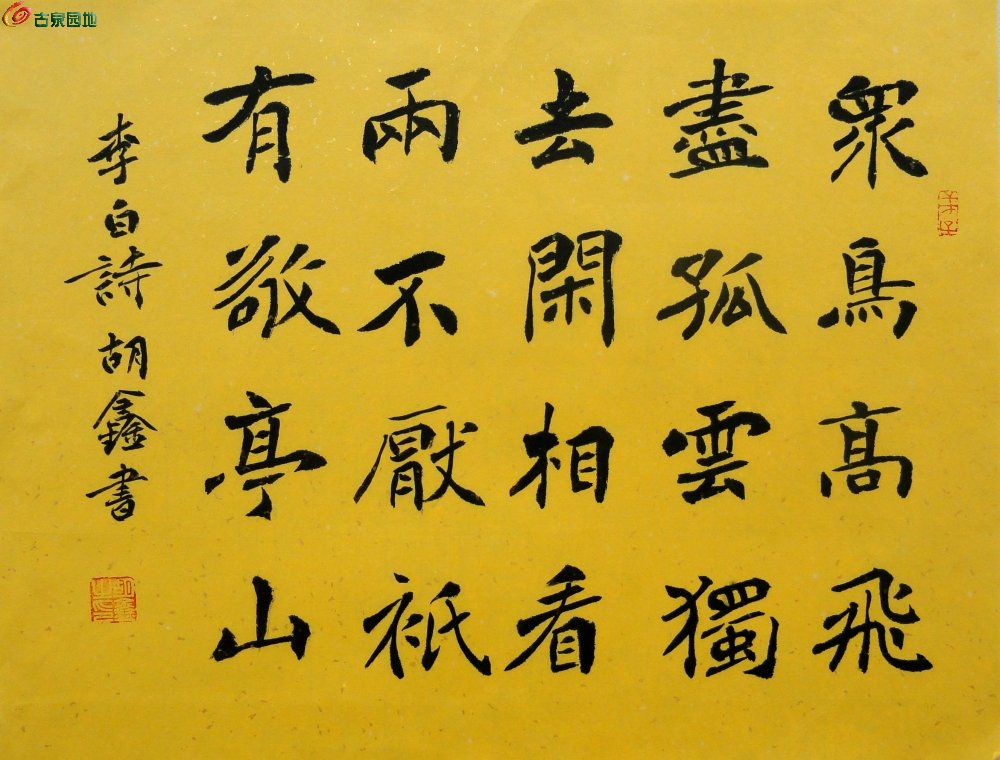 衆鳥高飛
盡孤雲獨
去閑相看
兩不厭祇
有敬亭山
李白詩 胡鑫書
古泉园地